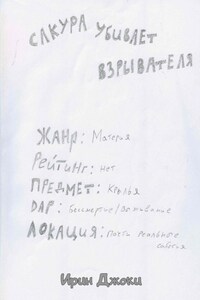 САКУРА УБИВАЕТ
ВЗРЫВАТЕЛЯ
ЖАНР: Мистерия
РЕЙТИНГ: нет
ПРЕДМЕТ: Крылья
ДАР: Бессмертие/
ЛОКАЦИЯ: Почти реальные
события
Ирин Джоки